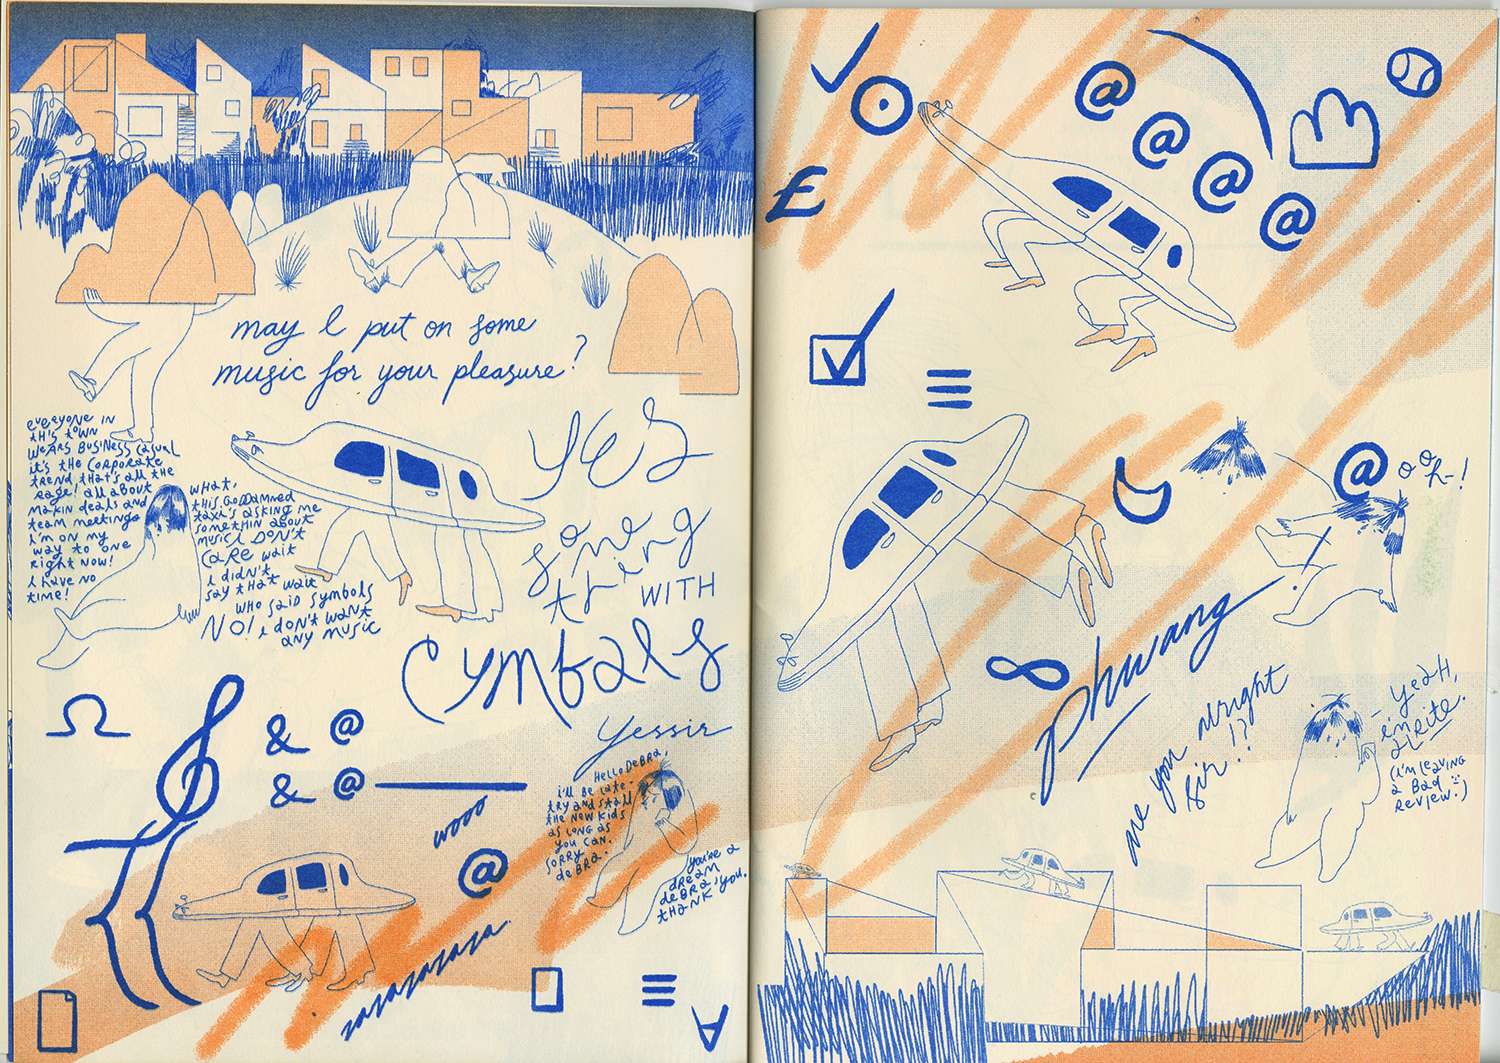 may I put on some
music for your pleasure?
everyone in
th's town
wears business casual
it's the corporate
trend that's all the
rage! all about
makin deals and
team meetings
i'm on my
way to one
right now!
i have no
time!
what,
this goddamned
taxi's asking me
somethin about
music I don't
care wait
i didn't
say that wait
who said symbols
NO! i don't want
any music
YES
some
thing
WITH
cymbals
yessir
Ω
& @
& @
wooo
@
zazazazaza
Hello Debra,
i'll be late-
try and stall
the new kids
as long as
you can.
sorry
debra.
you're a
dream
debra, you.
thank
≡
A
@ @ @ @
£
≡
@ ooh-!
∞
phwang
are you alright
sir!?
- yeah,
i'm
alrite.
(i'm leaving
a bad
review:)